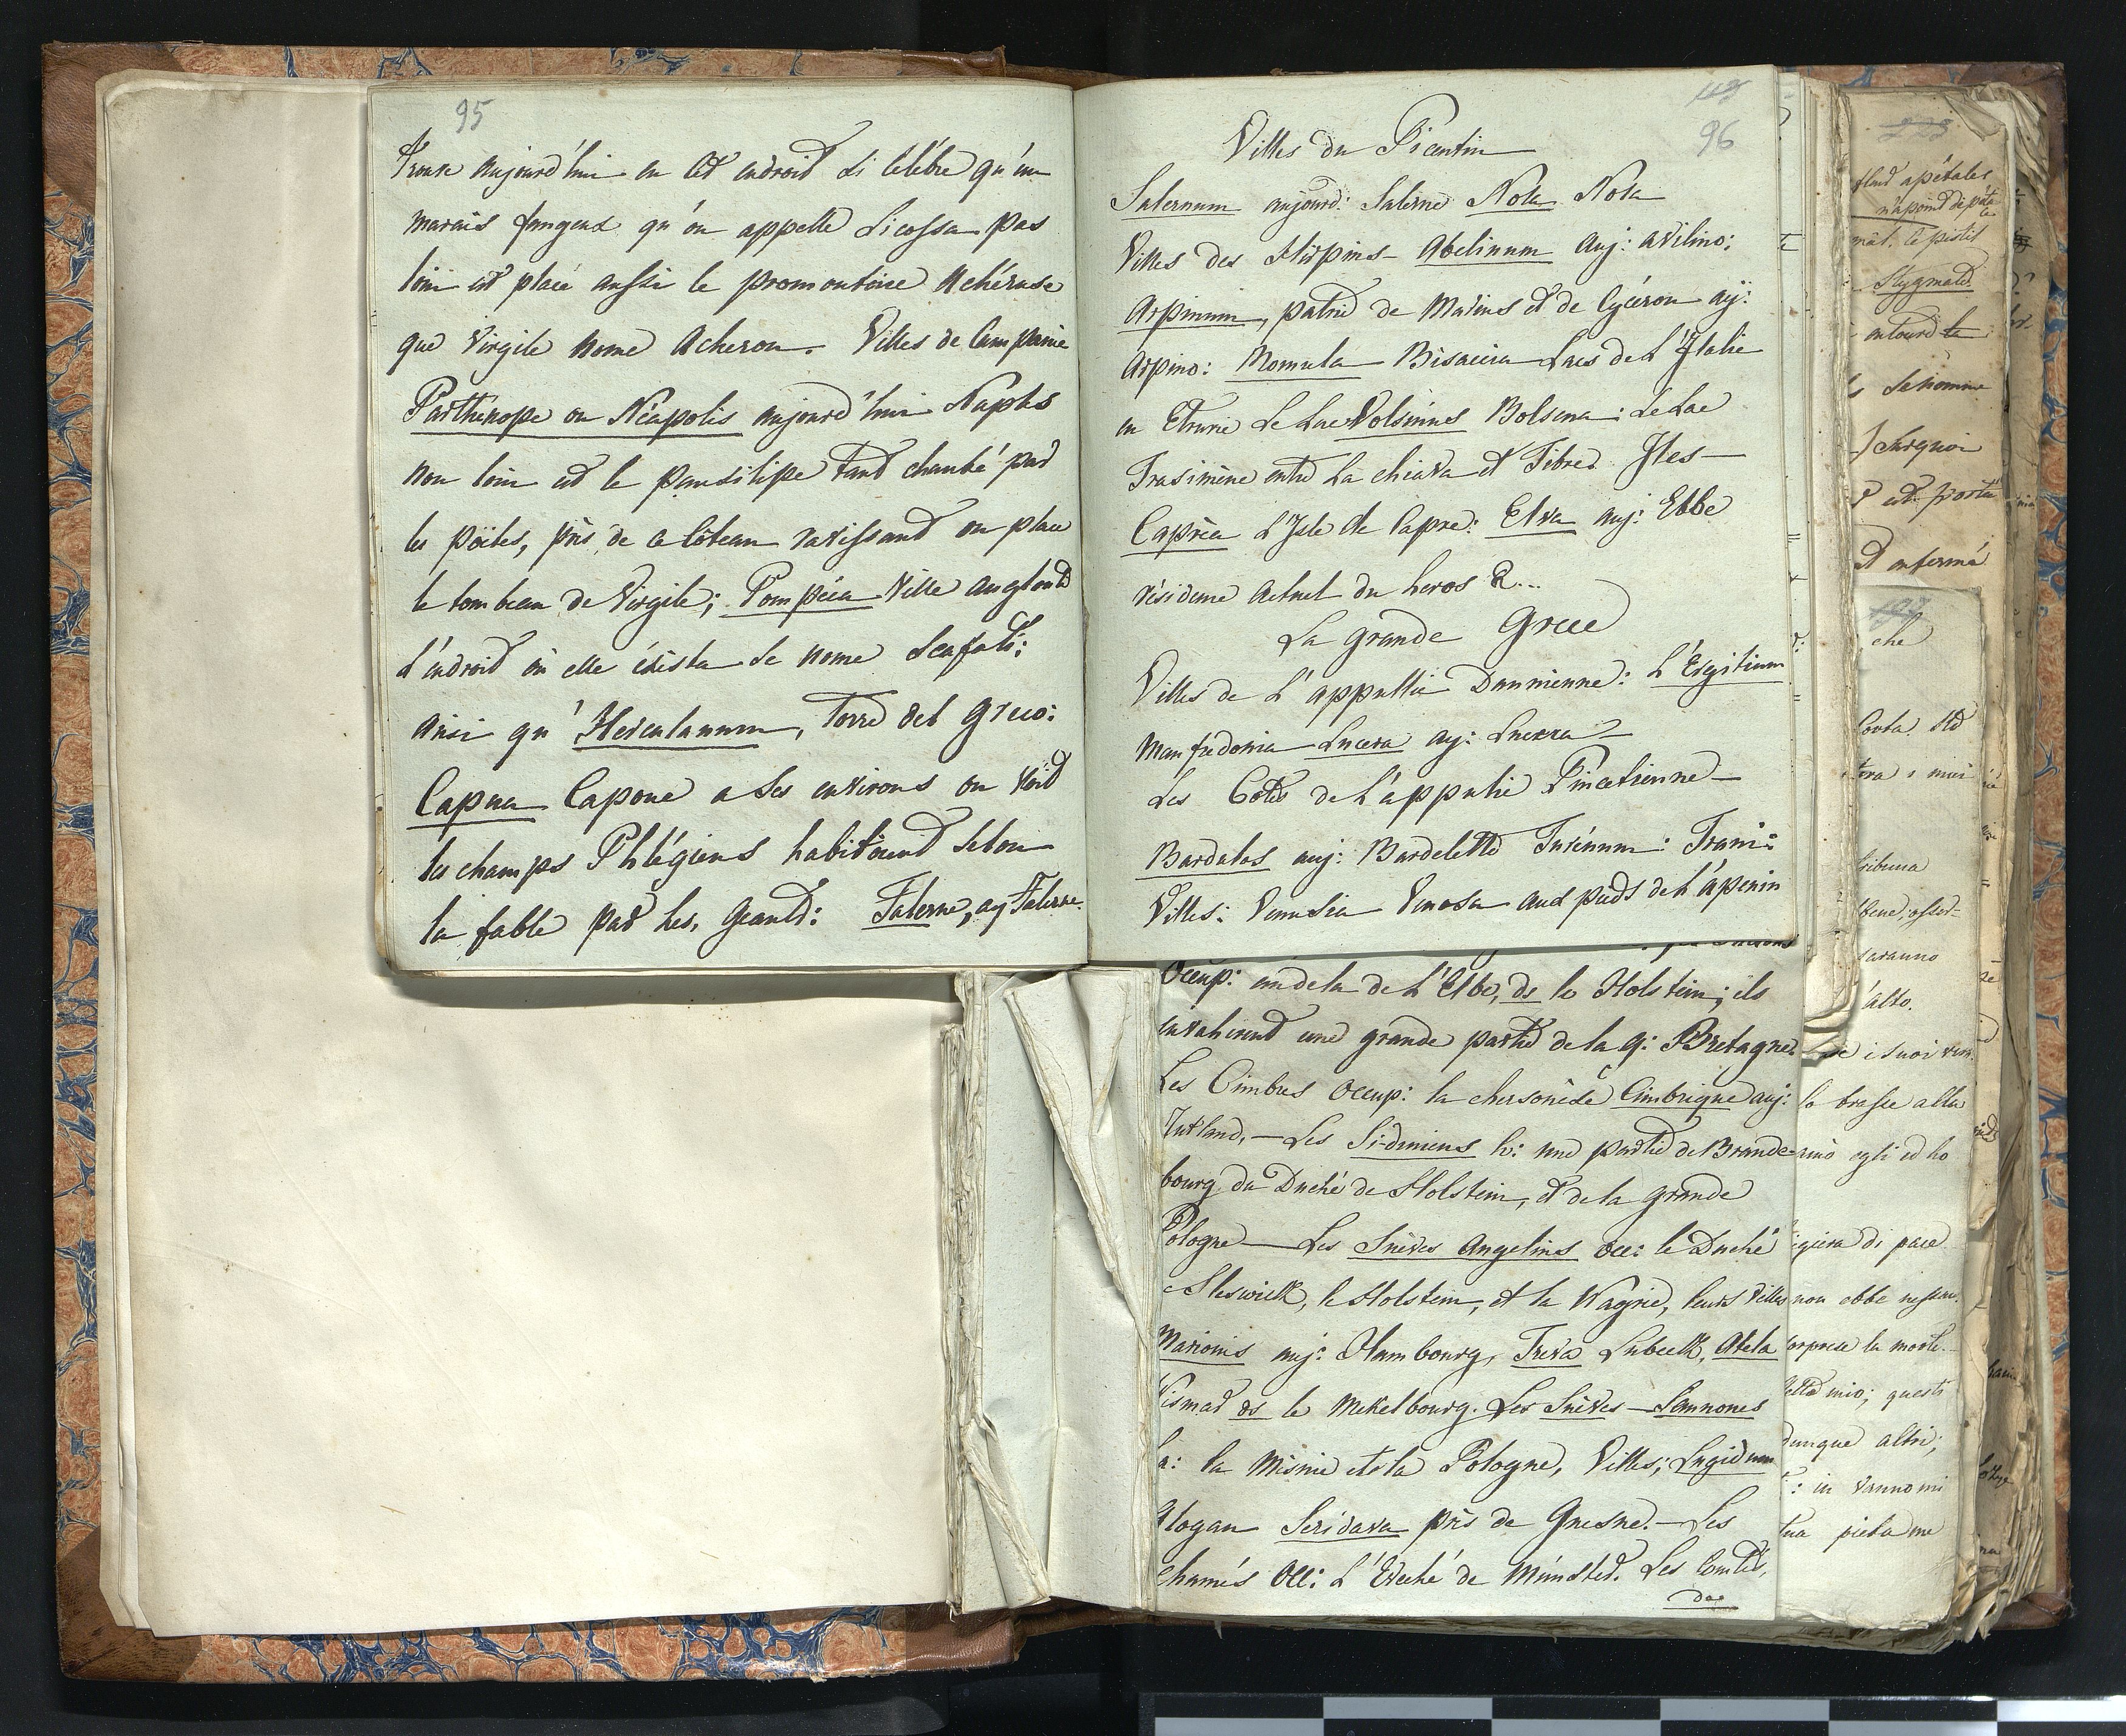 95
trouve aujourd'hui en cet endroit si célèbre qu'un
marais fangeux qu'on appelle Licossa pas
loin est placé aussi le promontoire Achéruse
que Virgile nome Acheron. Villes de Campanie
Parthenope ou Néapolis aujourd'hui Naples
non loin est le pausilipe tant chanté par
les pöetes, près de ce côteau ravissant on place
le tombeau de Virgile; Pompéia ville
l'endroit où elle éxista se nome Scafati:
ainsi qu'Herculanum, Torre del Greco:
Capua Capoue a ses environs on voit
les champs Phlégiens habitoient selon
la fable par les, Geants: Falerne, auj Falerne.
113
96
Villes du Picentin
Salernum aujourd: Salerne Nola Nola
Villes des Hirpins - Abelinum Auj: Avilino;
Arpinum, patrie de Marius et de Cycéron auj:
Arpino: Momula Bisaccia Lacs de L'Italie
en Etrurie Le Lac Volsinius Bolsena: Le Lac
Trasimène entre La chiava et Tibre. Iles -
Capréa L'Isle de Capre: Elva auj: Elbe
résidence actuel du heros B...
La grande Grece
Villes de L'appullie Daunienne: L'Ergitium
Manfredonia Lucera auj: Lucera -
Les Cotes de L'appulie Pincetienne -
Bardulos auj: Bardelette Turénum: Trani:
Villes: Venusia Venosa aux pieds de L'apenin
Occup: audela de L'Elbe, ds le Holstein; ils
envahirent une grande partie de la g: Bretagne.
Les Cimbres occup: la chersonèse Cimbrique auj:
Jutland, - Les Si-diniens h: une partie de Brande-
bourg du Duché de Holstein, et de la grande
Pologne - Les Suèves Angelins occ: le Duché
Sleswick, le Holstein, et la Wagrie, leurs villes
Marionis auj: Hambourg, Treva Lubeck, Alela
Vismar ds le Mekelbourg. Les Suèves - Semnones
h: la Misnie et la Pologne, Villes; Lugidunum
Glogau Seridava près de Gnesne. - Les
Chamés Occ: L'Evêché de Münster. Les Comtés,
de
223
apétales
le pistil
Stygmate
autour de
Se nomme
est porté
et enfermé
che
tribuna
saranno
alto.
i suoi
le brasse alla
egli ed ho
di pace
non ebbe nessun
la morte
mio; questi
dunque altri;
: in